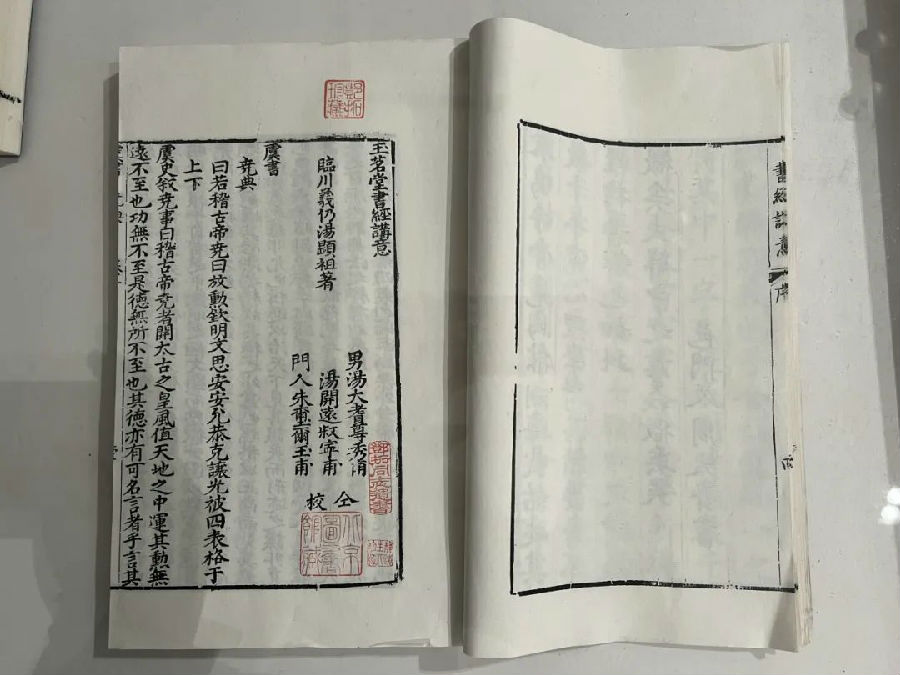 書經講意
序
四
鄧拓珍藏
玉茗堂書經講意
臨川義仍湯顯祖著
男湯大耆尊秀甫
湯開遠叔寧甫
門人朱璽爾玉甫
仝校
北京圖書館藏
虞書
堯典
曰若稽古帝堯曰放勳欽明文思安安允恭克讓光被四表格于
上下
虞史叙堯事曰稽古帝堯者開太古之皇風值天地之中運其勳無
遠不至也功無不至是德無所不至也其德亦有可名言者乎言其